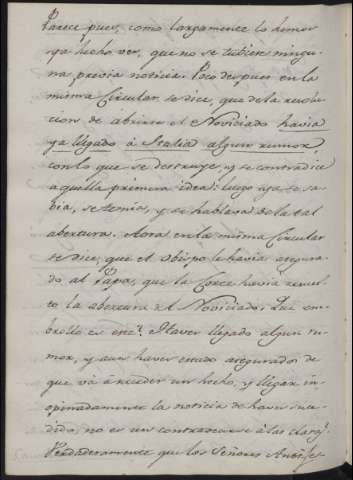 Parece pues, como largamente lo hemos
ya hecho ver, que no se tubiere ningu-
na previa noticia. Poco despues en la
misma Circular, se dice, que de la resolu-
cion de abrirse el Noviciado havia
ya llegado à Italia algun rumor,
con lo que se destruye, y se contradice
aquella primera idea: luego ya se sa-
bia, se temia, y se hablava de la tal
abertura. Aora en la misma Circular
se dice, que el Obispo le havia asegura-
do al Papa, que la Corte havia resuel-
to la abertura del Noviciado. Què em-
brollo es este? Haver llegado algun ru-
mor, y aun haver estado asegurados de
que và à suceder un hecho, y llegar in-
opinadamente la noticia de haver suce-
dido, no es un contradecirse à las claras?
Verdaderamente que los Señores